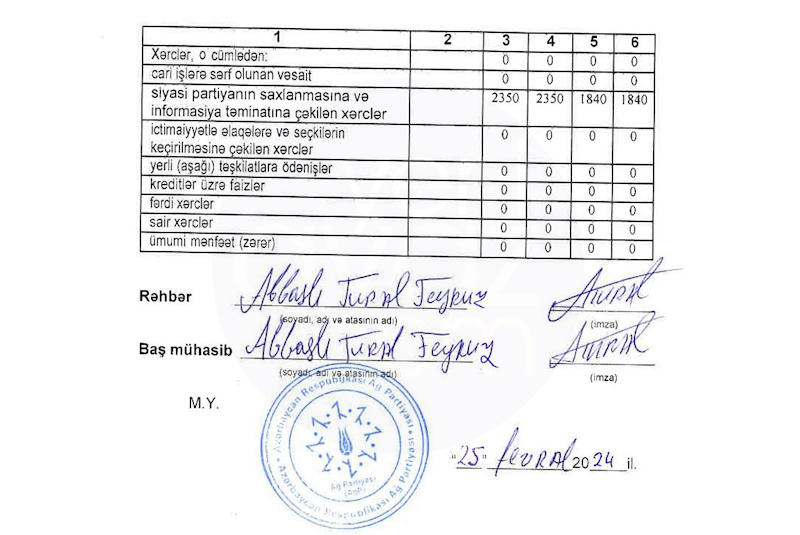 1 2 3 4 5 6
Xərclər, o cümlədən: 0 0 0 0
cari işlərə sərf olunan vəsait 0 0 0 0
siyasi partiyanın saxlanmasına və
informasiya təminatına çəkilən xərclər 2350 2350 1840 1840
ictimaiyyətlə əlaqələrə və seçkilərin
keçirilməsinə çəkilən xərclər 0 0 0 0
yerli (aşağı) təşkilatlara ödənişlər 0 0 0 0
kreditlər üzrə faizlər 0 0 0 0
fərdi xərclər 0 0 0 0
sair xərclər 0 0 0 0
ümumi mənfəət (zərər) 0 0 0 0
Rəhbər Abbaslı Tural Feyruz
(soyadı, adı və atasının adı) (imza)
Baş mühasib Abbaslı Tural Feyruz
(soyadı, adı və atasının adı) (imza)
M.Y.
Azərbaycan Respublikası Ağ Partiyası
Azərbaycan Respublikası Ağ Partiyası
Ağ Partiyası
(AğP)
"25" fevral 2024 il.